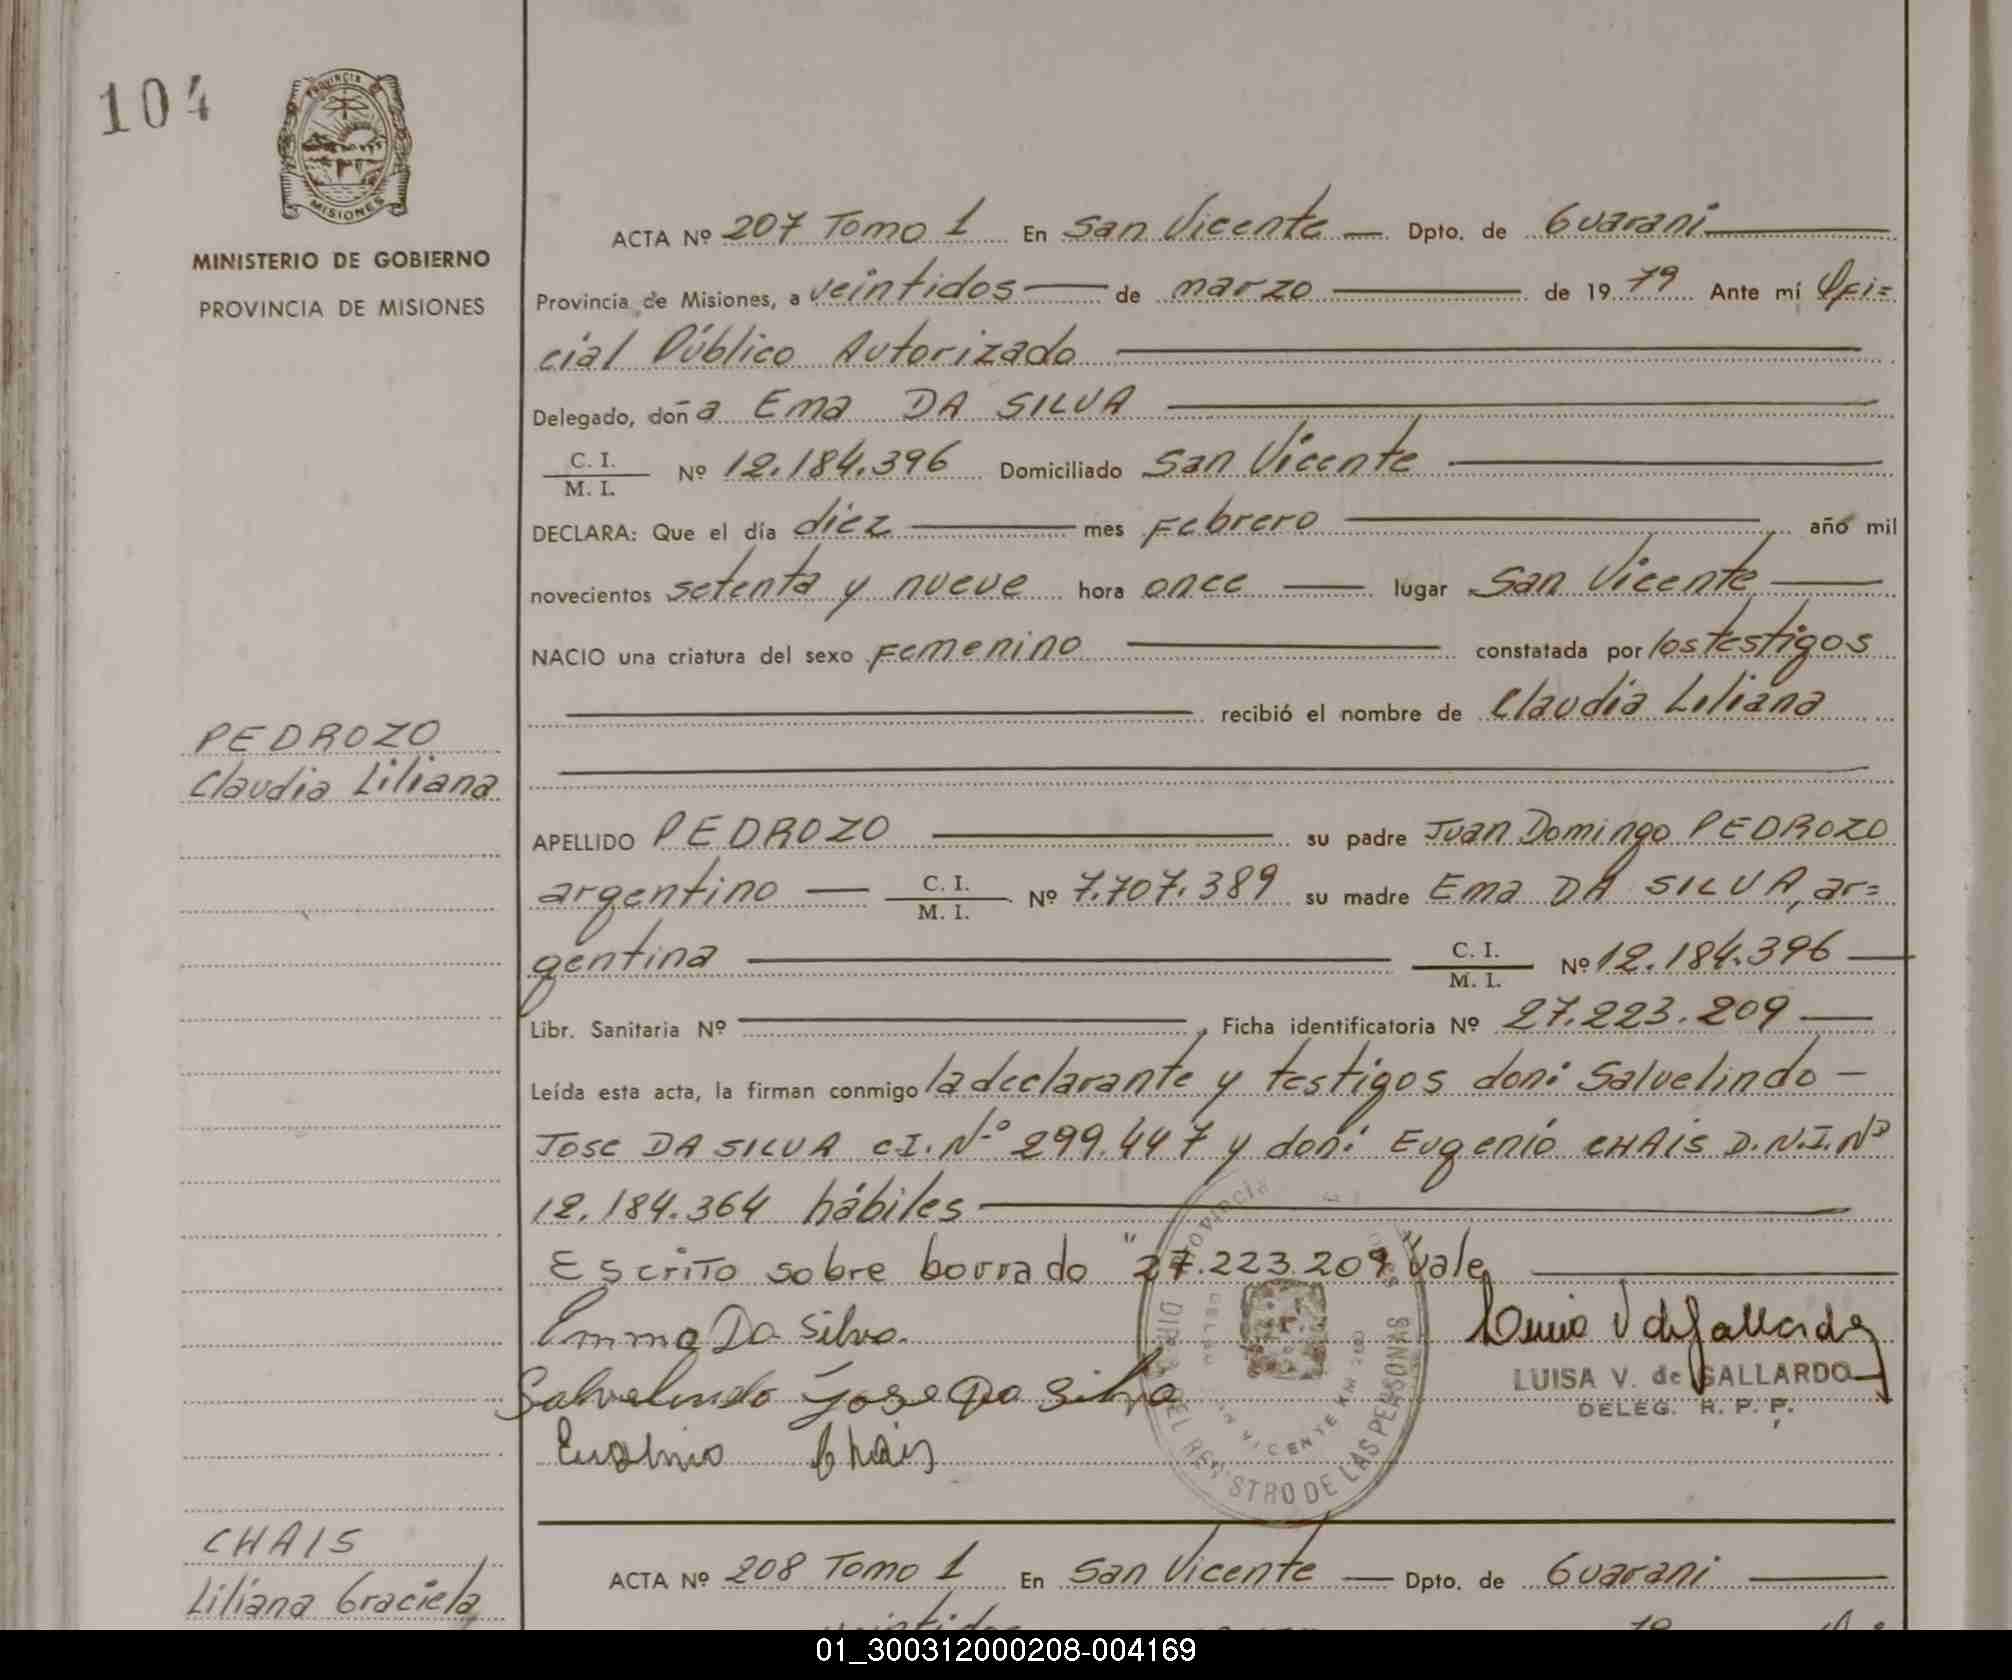 104
PROVINCIA
MISIONES
MINISTERIO DE GOBIERNO
PROVINCIA DE MISIONES
ACTA Nº 207 Tomo 1 En San Vicente — Dpto. de Guarani
Provincia de Misiones, a veintidos de marzo de 19 79 Ante mí Ofi=
cial Público Autorizado
Delegado, doña Ema DA SILVA
C. I.
M. I. Nº 12.184.396 Domiciliado San Vicente
DECLARA: Que el día diez mes Febrero año mil
novecientos setenta y nueve hora once lugar San Vicente
NACIO una criatura del sexo Femenino constatada por los testigos
recibió el nombre de Claudia Liliana
PEDROZO
Claudia Liliana
APELLIDO PEDROZO su padre Juan Domingo PEDROZO
argentino — C. I. M. I. Nº 7.707.389 su madre Ema DA SILVA, ar=
gentina C. I. M. I. Nº 12.184.396 —
Libr. Sanitaria Nº , Ficha identificatoria Nº 27.223.209 —
Leída esta acta, la firman conmigo la declarante y testigos don: Salvelindo —
Jose DA SILVA C.I. Nº 299.447 y don: Eugenio CHAIS D.N.I. Nº
12.184.364 hábiles
Escrito sobre borrado "27.223.209" Vale
Emma Da Silva.
Salvelindo Jose Da Silva
Eugenio Chais
LUISA V. de GALLARDO
DELEG. R. P. P.
PROVINCIA
DEL REGISTRO DE LAS PERSONAS
CHAIS
Liliana Graciela
ACTA Nº 208 Tomo 1 En San Vicente — Dpto. de Guarani
01_300312000208-004169